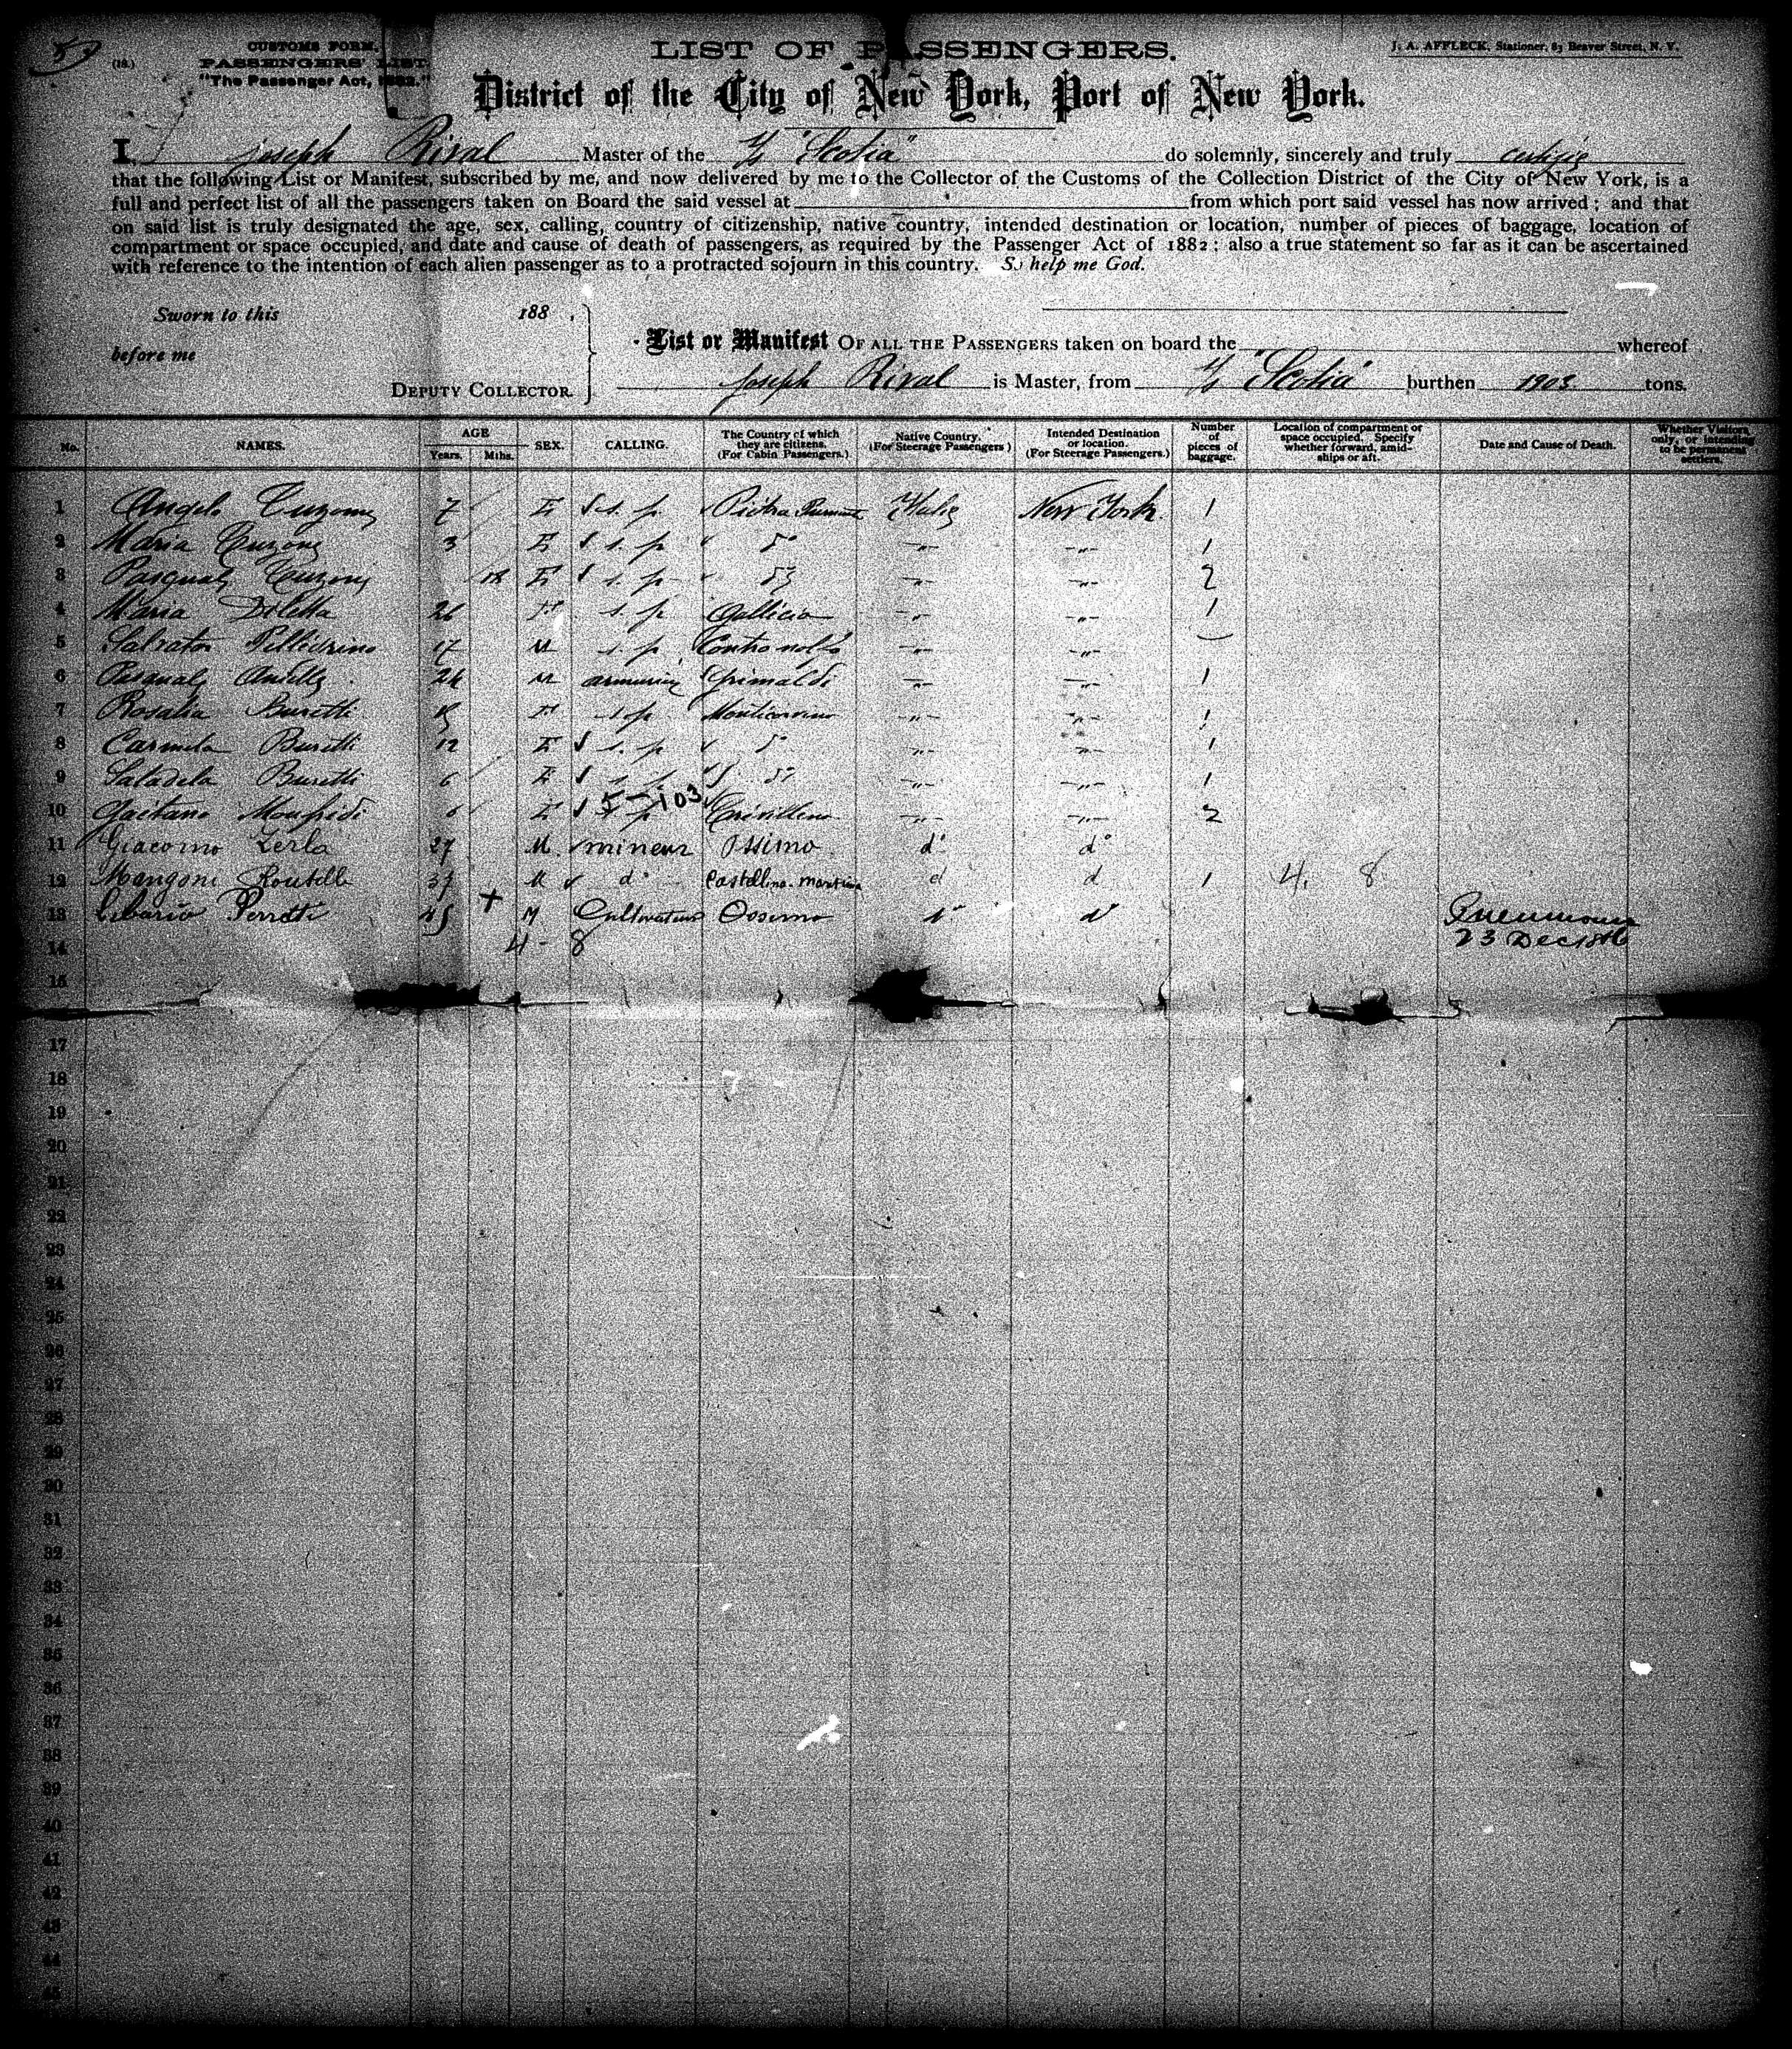 CUSTOMS FORM.
(18.) PASSENGERS' LIST.
"The Passenger Act, 1882."
LIST OF PASSENGERS.
J. A. AFFLECK, Stationer, 83 Beaver Street, N. Y.
District of the City of New York, Port of New York.
I, Joseph Rival Master of the "Scotia" do solemnly, sincerely and truly certifie
that the following List or Manifest, subscribed by me, and now delivered by me to the Collector of the Customs of the Collection District of the City of New York, is a
full and perfect list of all the passengers taken on Board the said vessel at from which port said vessel has now arrived; and that
on said list is truly designated the age, sex, calling, country of citizenship, native country, intended destination or location, number of pieces of baggage, location of
compartment or space occupied, and date and cause of death of passengers, as required by the Passenger Act of 1882; also a true statement so far as it can be ascertained
with reference to the intention of each alien passenger as to a protracted sojourn in this country. So help me God.
Sworn to this 188 ,
before me
DEPUTY COLLECTOR.
List or Manifest OF ALL THE PASSENGERS taken on board the whereof
Joseph Rival is Master, from "Scotia" burthen 1903 tons.
No. NAMES. AGE Years. Mths. SEX. CALLING. The Country of which they are citizens. (For Cabin Passengers.) Native Country. (For Steerage Passengers) Intended Destination or location. (For Steerage Passengers.) Number of pieces of baggage. Location of compartment or space occupied. Specify whether forward, amidships or aft. Date and Cause of Death. Whether Visitors only, or intending to be permanent settlers.
1 Angelo 7 s. p. Pietra Italie New York 1
2 Maria 3 s. p. do -"- -"- 1
3 s. p. do -"- -"- 2
4 Maria 26 s. p. Gallicio -"- -"- 1
5 Salvator Pellédrino 17 M s. p. -"- -"-
6 24 M Grimaldi -"- -"- 1
7 Rosalia Buretti s. p. -"- -"- 1
8 Carmela Buretti 12 s. p. do -"- -"- 1
9 Buretti 6 do -"- -"- 1
10 Gaetano 6 -"- -"- 2
5-103
11 Giacomo Zerla 27 M. mineur Ossimo do do
12 Mangoni 37 M do Castellina-maritima d d 1 4. 8
13 Perrotti 45 + M Cultivateur Ossimo do do Pneumonia
14 4 - 8 23 Dec 1886
15
17
18
19
20
21
22
23
24
25
26
27
28
29
30
31
32
33
34
35
36
37
38
39
40
41
42
43
44
45